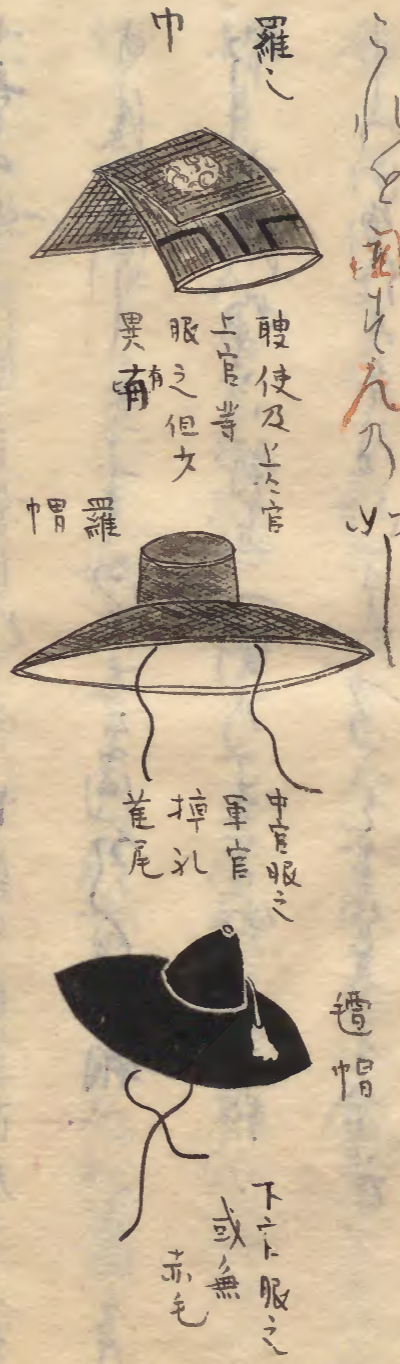 羅之
巾
聘使及上々官
上官等
服之但少
異有
羅
帽
中官服之
軍官
掉孔
雀尾
氊帽
下官服之
或無
赤毛